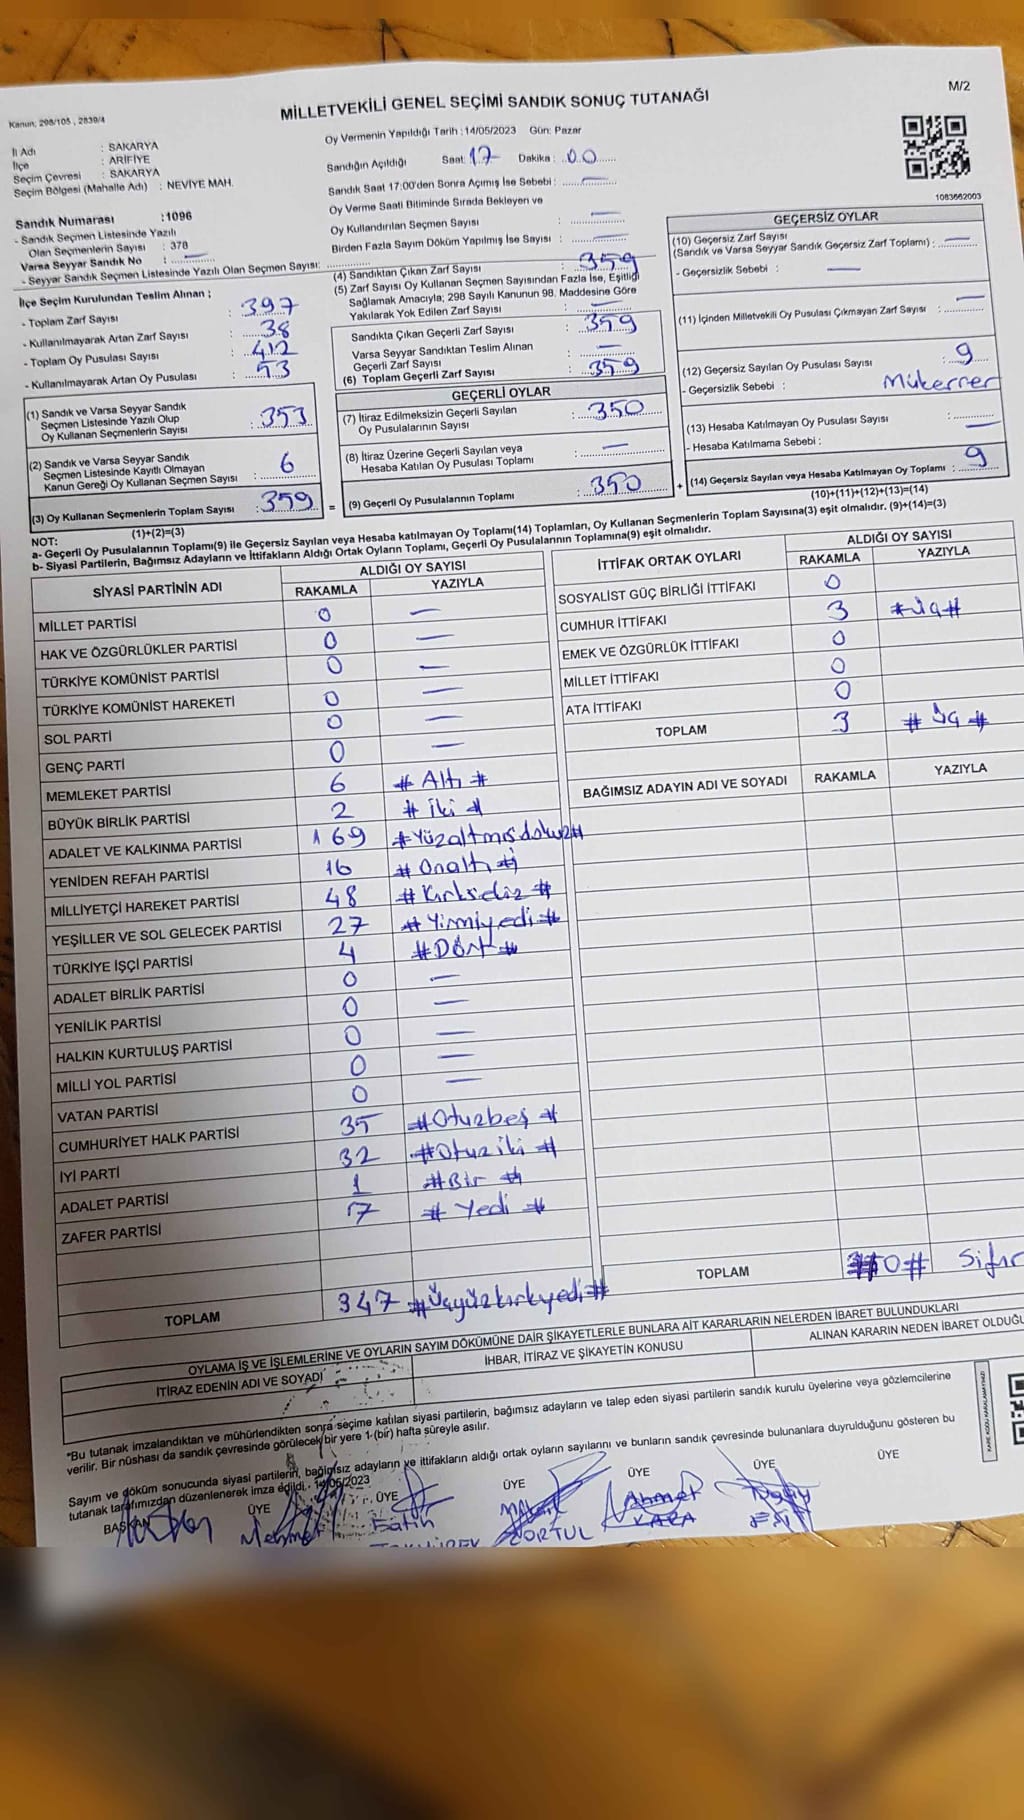 M/2
Kanun, 298/105 , 2839/4
MİLLETVEKİLİ GENEL SEÇİMİ SANDIK SONUÇ TUTANAĞI
İl Adı : SAKARYA
İlçe : ARİFİYE
Seçim Çevresi : SAKARYA
Seçim Bölgesi (Mahalle Adı) : NEVİYE MAH.
Sandık Numarası :1096
- Sandık Seçmen Listesinde Yazılı
Olan Seçmenlerin Sayısı : 378
Varsa Seyyar Sandık No : —
- Seyyar Sandık Seçmen Listesinde Yazılı Olan Seçmen Sayısı:
İlçe Seçim Kurulundan Teslim Alınan ;
- Toplam Zarf Sayısı : 397
- Kullanılmayarak Artan Zarf Sayısı : 38
- Toplam Oy Pusulası Sayısı : 412
- Kullanılmayarak Artan Oy Pusulası : 53
(1) Sandık ve Varsa Seyyar Sandık
Seçmen Listesinde Yazılı Olup
Oy Kullanan Seçmenlerin Sayısı : 353
(2) Sandık ve Varsa Seyyar Sandık
Seçmen Listesinde Kayıtlı Olmayan
Kanun Gereği Oy Kullanan Seçmen Sayısı : 6
(3) Oy Kullanan Seçmenlerin Toplam Sayısı : 359
(1)+(2)=(3)
Oy Vermenin Yapıldığı Tarih :14/05/2023 Gün: Pazar
Sandığın Açıldığı Saat: 17 Dakika : 00
Sandık Saat 17:00'den Sonra Açımış İse Sebebi : —
Oy Verme Saati Bitiminde Sırada Bekleyen ve
Oy Kullandırılan Seçmen Sayısı : —
Birden Fazla Sayım Döküm Yapılmış İse Sayısı : —
(4) Sandıktan Çıkan Zarf Sayısı : 359
(5) Zarf Sayısı Oy Kullanan Seçmen Sayısından Fazla İse, Eşitliği
Sağlamak Amacıyla; 298 Sayılı Kanunun 98. Maddesine Göre
Yakılarak Yok Edilen Zarf Sayısı : —
Sandıkta Çıkan Geçerli Zarf Sayısı : 359
Varsa Seyyar Sandıktan Teslim Alınan
Geçerli Zarf Sayısı : —
(6) Toplam Geçerli Zarf Sayısı : 359
GEÇERLİ OYLAR
(7) İtiraz Edilmeksizin Geçerli Sayılan
Oy Pusulalarının Sayısı : 350
(8) İtiraz Üzerine Geçerli Sayılan veya
Hesaba Katılan Oy Pusulası Toplamı : —
= (9) Geçerli Oy Pusulalarının Toplamı : 350
1083662003
GEÇERSİZ OYLAR
(10) Geçersiz Zarf Sayısı
(Sandık ve Varsa Seyyar Sandık Geçersiz Zarf Toplamı) : —
- Geçersizlik Sebebi : —
(11) İçinden Milletvekili Oy Pusulası Çıkmayan Zarf Sayısı : —
(12) Geçersiz Sayılan Oy Pusulası Sayısı : 9
- Geçersizlik Sebebi : Mükerrer
(13) Hesaba Katılmayan Oy Pusulası Sayısı : —
- Hesaba Katılmama Sebebi :
+ (14) Geçersiz Sayılan veya Hesaba Katılmayan Oy Toplamı : 9
(10)+(11)+(12)+(13)=(14)
NOT:
a- Geçerli Oy Pusulalarının Toplamı(9) ile Geçersiz Sayılan veya Hesaba katılmayan Oy Toplamı(14) Toplamları, Oy Kullanan Seçmenlerin Toplam Sayısına(3) eşit olmalıdır. (9)+(14)=(3)
b- Siyasi Partilerin, Bağımsız Adayların ve İttifakların Aldığı Ortak Oyların Toplamı, Geçerli Oy Pusulalarının Toplamına(9) eşit olmalıdır.
SİYASİ PARTİNİN ADI
ALDIĞI OY SAYISI
RAKAMLA YAZIYLA
MİLLET PARTİSİ 0 —
HAK VE ÖZGÜRLÜKLER PARTİSİ 0 —
TÜRKİYE KOMÜNİST PARTİSİ 0 —
TÜRKİYE KOMÜNİST HAREKETİ 0 —
SOL PARTİ 0 —
GENÇ PARTİ 0 —
MEMLEKET PARTİSİ 6 # Altı #
BÜYÜK BİRLİK PARTİSİ 2 # iki #
ADALET VE KALKINMA PARTİSİ 169 #Yüzaltmışdokuz#
YENİDEN REFAH PARTİSİ 16 # Onaltı #
MİLLİYETÇİ HAREKET PARTİSİ 48 #Kırksekiz #
YEŞİLLER VE SOL GELECEK PARTİSİ 27 # Yirmiyedi #
TÜRKİYE İŞÇİ PARTİSİ 4 #Dört #
ADALET BİRLİK PARTİSİ 0 —
YENİLİK PARTİSİ 0 —
HALKIN KURTULUŞ PARTİSİ 0 —
MİLLİ YOL PARTİSİ 0 —
VATAN PARTİSİ 0 —
CUMHURİYET HALK PARTİSİ 35 #Otuzbeş #
İYİ PARTİ 32 #Otuziki #
ADALET PARTİSİ 1 #Bir #
ZAFER PARTİSİ 7 # Yedi #
TOPLAM 347 #Üçyüzkırkyedi#
İTTİFAK ORTAK OYLARI
ALDIĞI OY SAYISI
RAKAMLA YAZIYLA
SOSYALİST GÜÇ BİRLİĞİ İTTİFAKI 0
CUMHUR İTTİFAKI 3 #üç#
EMEK VE ÖZGÜRLÜK İTTİFAKI 0
MİLLET İTTİFAKI 0
ATA İTTİFAKI 0
TOPLAM 3 # üç #
BAĞIMSIZ ADAYIN ADI VE SOYADI RAKAMLA YAZIYLA
TOPLAM #0# Sıfır
OYLAMA İŞ VE İŞLEMLERİNE VE OYLARIN SAYIM DÖKÜMÜNE DAİR ŞİKAYETLERLE BUNLARA AİT KARARLARIN NELERDEN İBARET BULUNDUKLARI
İTİRAZ EDENİN ADI VE SOYADI İHBAR, İTİRAZ VE ŞİKAYETİN KONUSU ALINAN KARARIN NEDEN İBARET OLDUĞU
*Bu tutanak imzalandıktan ve mühürlendikten sonra seçime katılan siyasi partilerin, bağımsız adayların ve talep eden siyasi partilerin sandık kurulu üyelerine veya gözlemcilerine
verilir. Bir nüshası da sandık çevresinde görülecek bir yere 1-(bir) hafta süreyle asılır.
Sayım ve döküm sonucunda siyasi partilerin, bağımsız adayların ve ittifakların aldığı ortak oyların sayılarını ve bunların sandık çevresinde bulunanlara duyrulduğunu gösteren bu
tutanak tarafımızdan düzenlenerek imza edildi. 14/05/2023
BAŞKAN ÜYE ÜYE ÜYE ÜYE ÜYE ÜYE
Mehmet Fatih ZORTUL Ahmet KARA